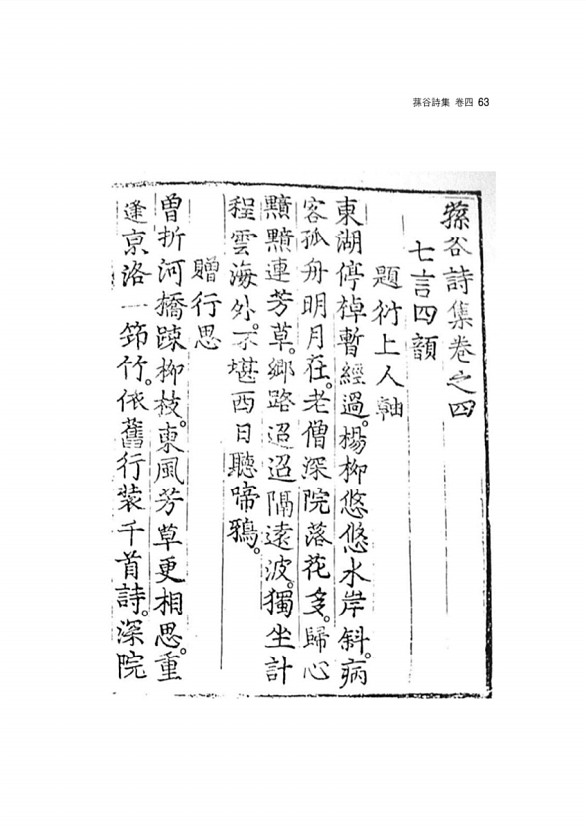 蓀谷詩集 卷四 63
蓀谷詩集卷之四
七言四韻
題衍上人軸
東湖停棹暫經過。楊柳悠悠水岸斜。病
客孤舟明月在。老僧深院落花多。歸心
黯黯連芳草。鄉路迢迢隔遠波。獨坐計
程雲海外。不堪西日聽啼鴉。
贈行思
曾折河橋踈柳枝。東風芳草更相思。重
逢京洛一笻竹。依舊行裝千首詩。深院